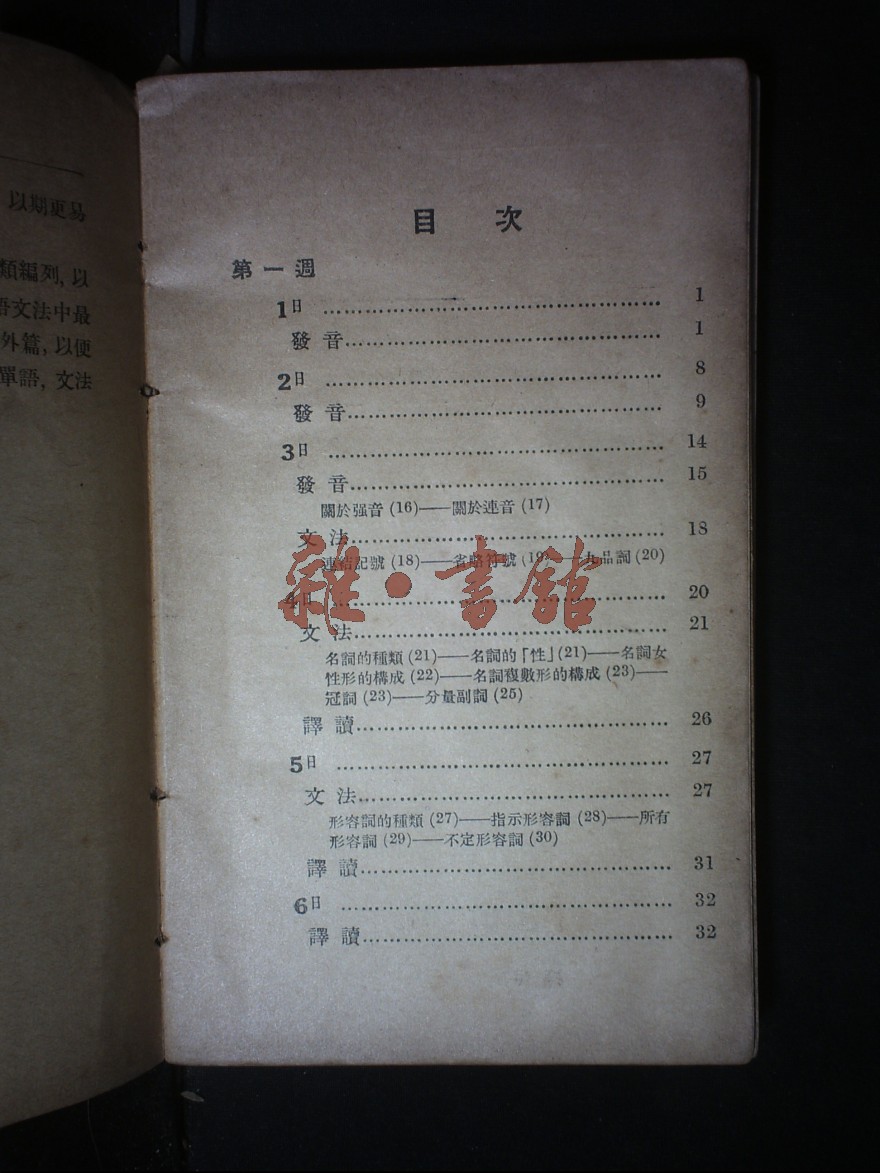 以期更易
類編列, 以
語文法中最
外篇, 以便
單語, 文法
目 次
第一週
1日 …… 1
發音 …… 1
2日 …… 8
發音 …… 9
3日 …… 14
發音 …… 15
關於强音 (16)——關於連音 (17)
文法 …… 18
連結記號 (18)——省略符號 (19)——九品詞 (20)
4日 …… 20
文法 …… 21
名詞的種類 (21)——名詞的「性」(21)——名詞女
性形的構成 (22)——名詞複數形的構成 (23)——
冠詞 (23)——分量副詞 (25)
譯讀 …… 26
5日 …… 27
文法 …… 27
形容詞的種類 (27)——指示形容詞 (28)——所有
形容詞 (29)——不定形容詞 (30)
譯讀 …… 31
6日 …… 32
譯讀 …… 32
雜·書館